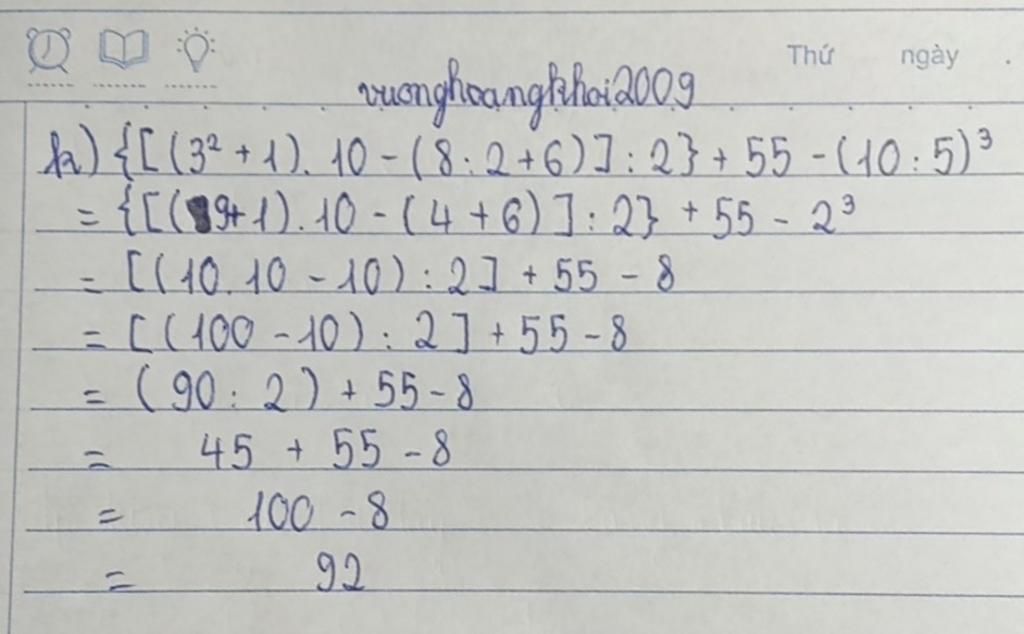 Thứ ngày .
vuonghoangkhoi2009
k) {[(3² + 1). 10 - (8 : 2 + 6)] : 2} + 55 - (10 : 5)³
= {[(9 + 1). 10 - (4 + 6)] : 2} + 55 - 2³
= [(10. 10 - 10) : 2] + 55 - 8
= [(100 - 10) : 2] + 55 - 8
= (90 : 2) + 55 - 8
= 45 + 55 - 8
= 100 - 8
= 92